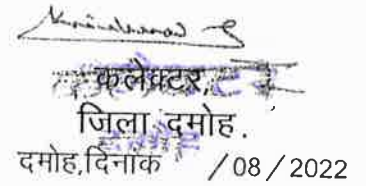 कलैक्टर,
जिला दमोह.
दमोह,दिनांक /08/2022